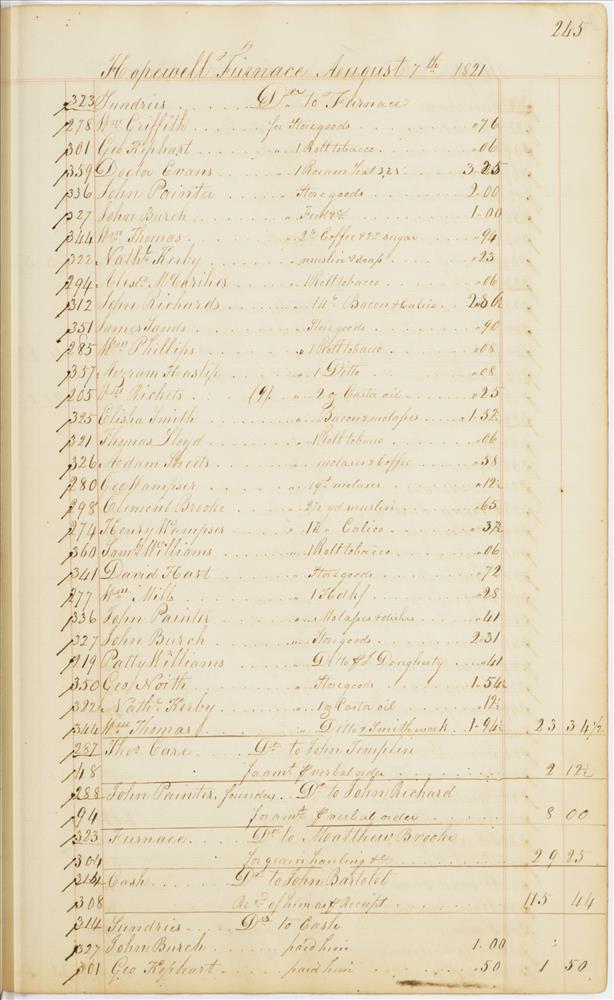 245
Hopewell Furnace August 7th 1821
323 Sundries Drs to Furnace
278 Wm Griffith for Store goods 76
301 Geo Kephart " 1 Roll tobacco 06
359 Doctor Evans " 3.25
336 John Painter " Store goods 2.00
327 John Burch " 1.00
344 Wm Thomas " 2lb Coffee & 2lb sugar 94
322 Nathl Kerby " muslin & soap 23
294 Alexr " 1 Roll tobacco 06
312 John Richards " 14lb Bacon & Calico
351 James Sands " Store goods 90
285 Wm Phillips " 1 Roll tobacco 08
357 Heaslip " 1 Ditto 08
205 Wm Rickets (9) " 2 oz Casta oil 25
325 Elisha Smith " Bacon & molases 1.52
321 Thomas Lloyd " 1 Roll tobacco 06
326 Aodam Sheets " molases & Coffee 58
280 Geo Wampser " molases 12½
298 Clement Brooke " 2½ yd muslin 65
274 Henry Wampser " 1½ " Calico 37½
360 Saml Williams " 1 Roll tobacco 06
341 David Hart " Store goods 72
277 Wm Mills " 1 Hdkf 28
336 John Painter " Molases & dishes 41
327 John Burch " Store goods 2.31
219 Patty Williams " Ditto & J. Dougherty 41
350 Geo North " Store goods 1.54½
322 Nathl Kerby " 1 oz Casta oil 12½
344 Wm Thomas " Ditto & Smith work 1.94½ 23 34½
287 Thos Care Dr to John Templin
48 for amt pr verbal order 2 12½
288 John Painter, founder Dr to John Richard
94 for amt pr verbal order 8 00
323 Furnace Dr to Matthew Brooke
304 for grain hauling &c 29 25
314 Cash Dr to John Bartolet
308 Recd of him as pr Receipt 115 44
314 Sundries Drs to Cash
327 John Burch paid him 1.00
301 Geo Kephart paid him .50 1 50